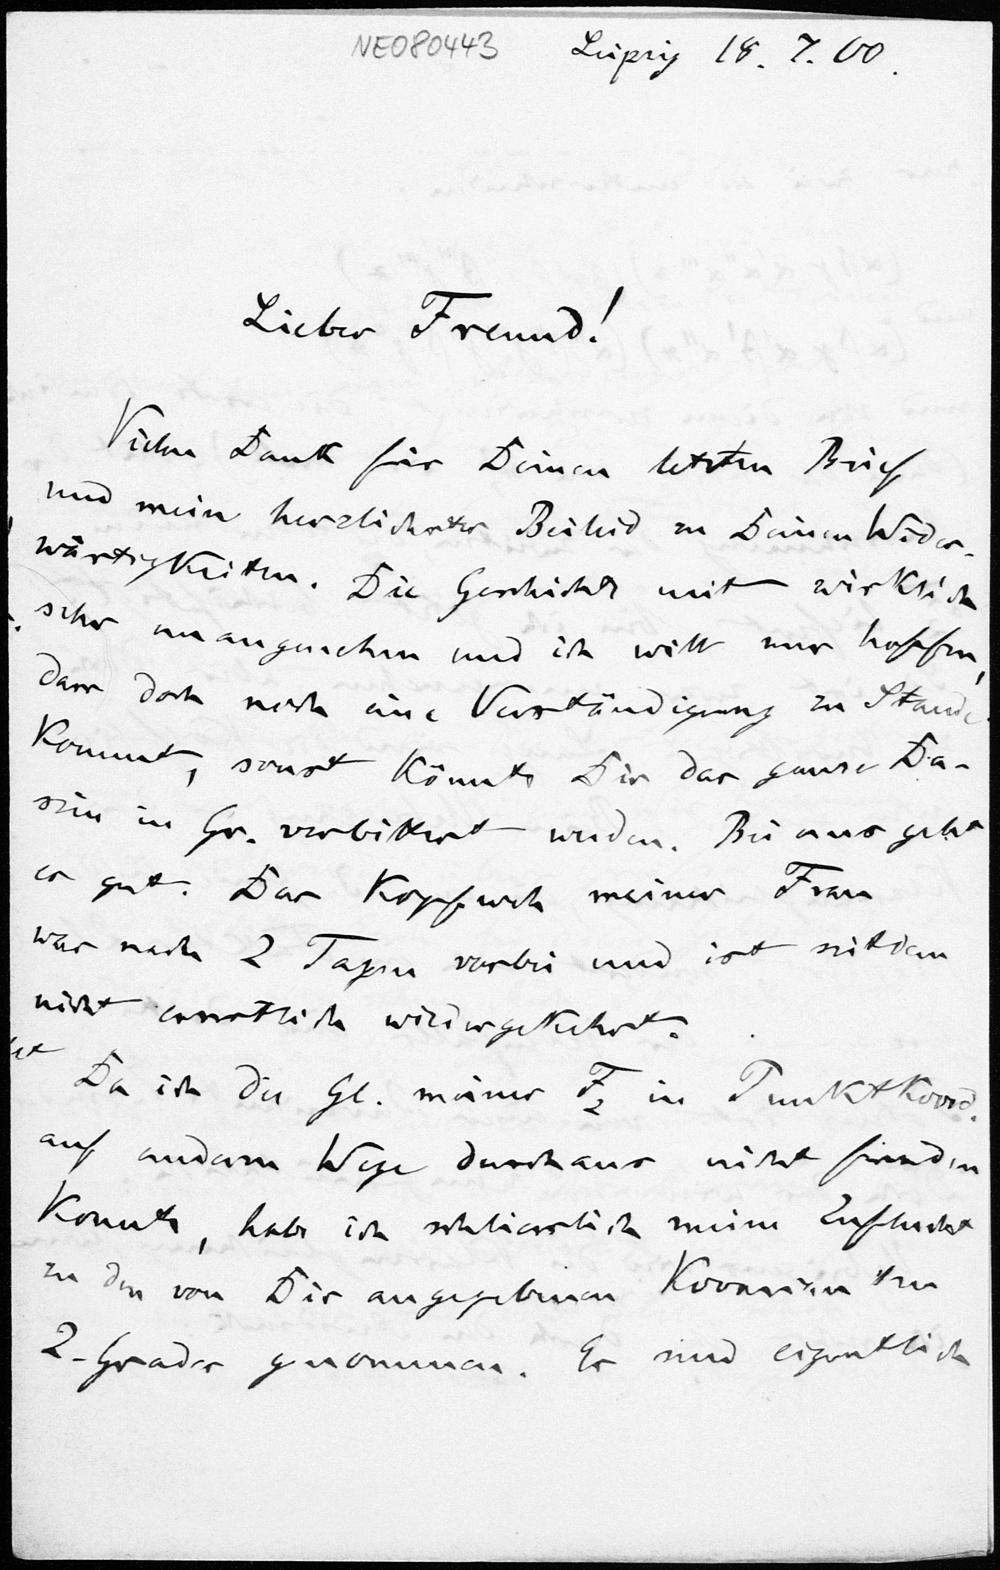 NE080443
Leipzig 18. 7. 00.
Lieber Freund!
Vielen Dank für Deinen letzten Brief
und mein herzlichstes Beileid zu Deinen Wider-
wärtigkeiten. Die Geschichte mit wirklich
sehr unangenehm und ich will nur hoffen,
dass doch noch eine Verständigung zu Stande
kommt, sonst könnte Dir das ganze Da-
sein in Gr. verbittert werden. Bei uns geht
es gut. Das Kopfweh meiner Frau
war nach 2 Tagen vorbei und ist seitdem
nicht ernstlich wiedergekehrt.
Da ich die Gl. meiner F2 in Punktkoord.
auf anderm Wege durchaus nicht finden
konnte, habe ich schliesslich meine Zuflucht
zu den von Dir angegebenen Kovarianten
2-Grades genommen. Es sind eigentlich